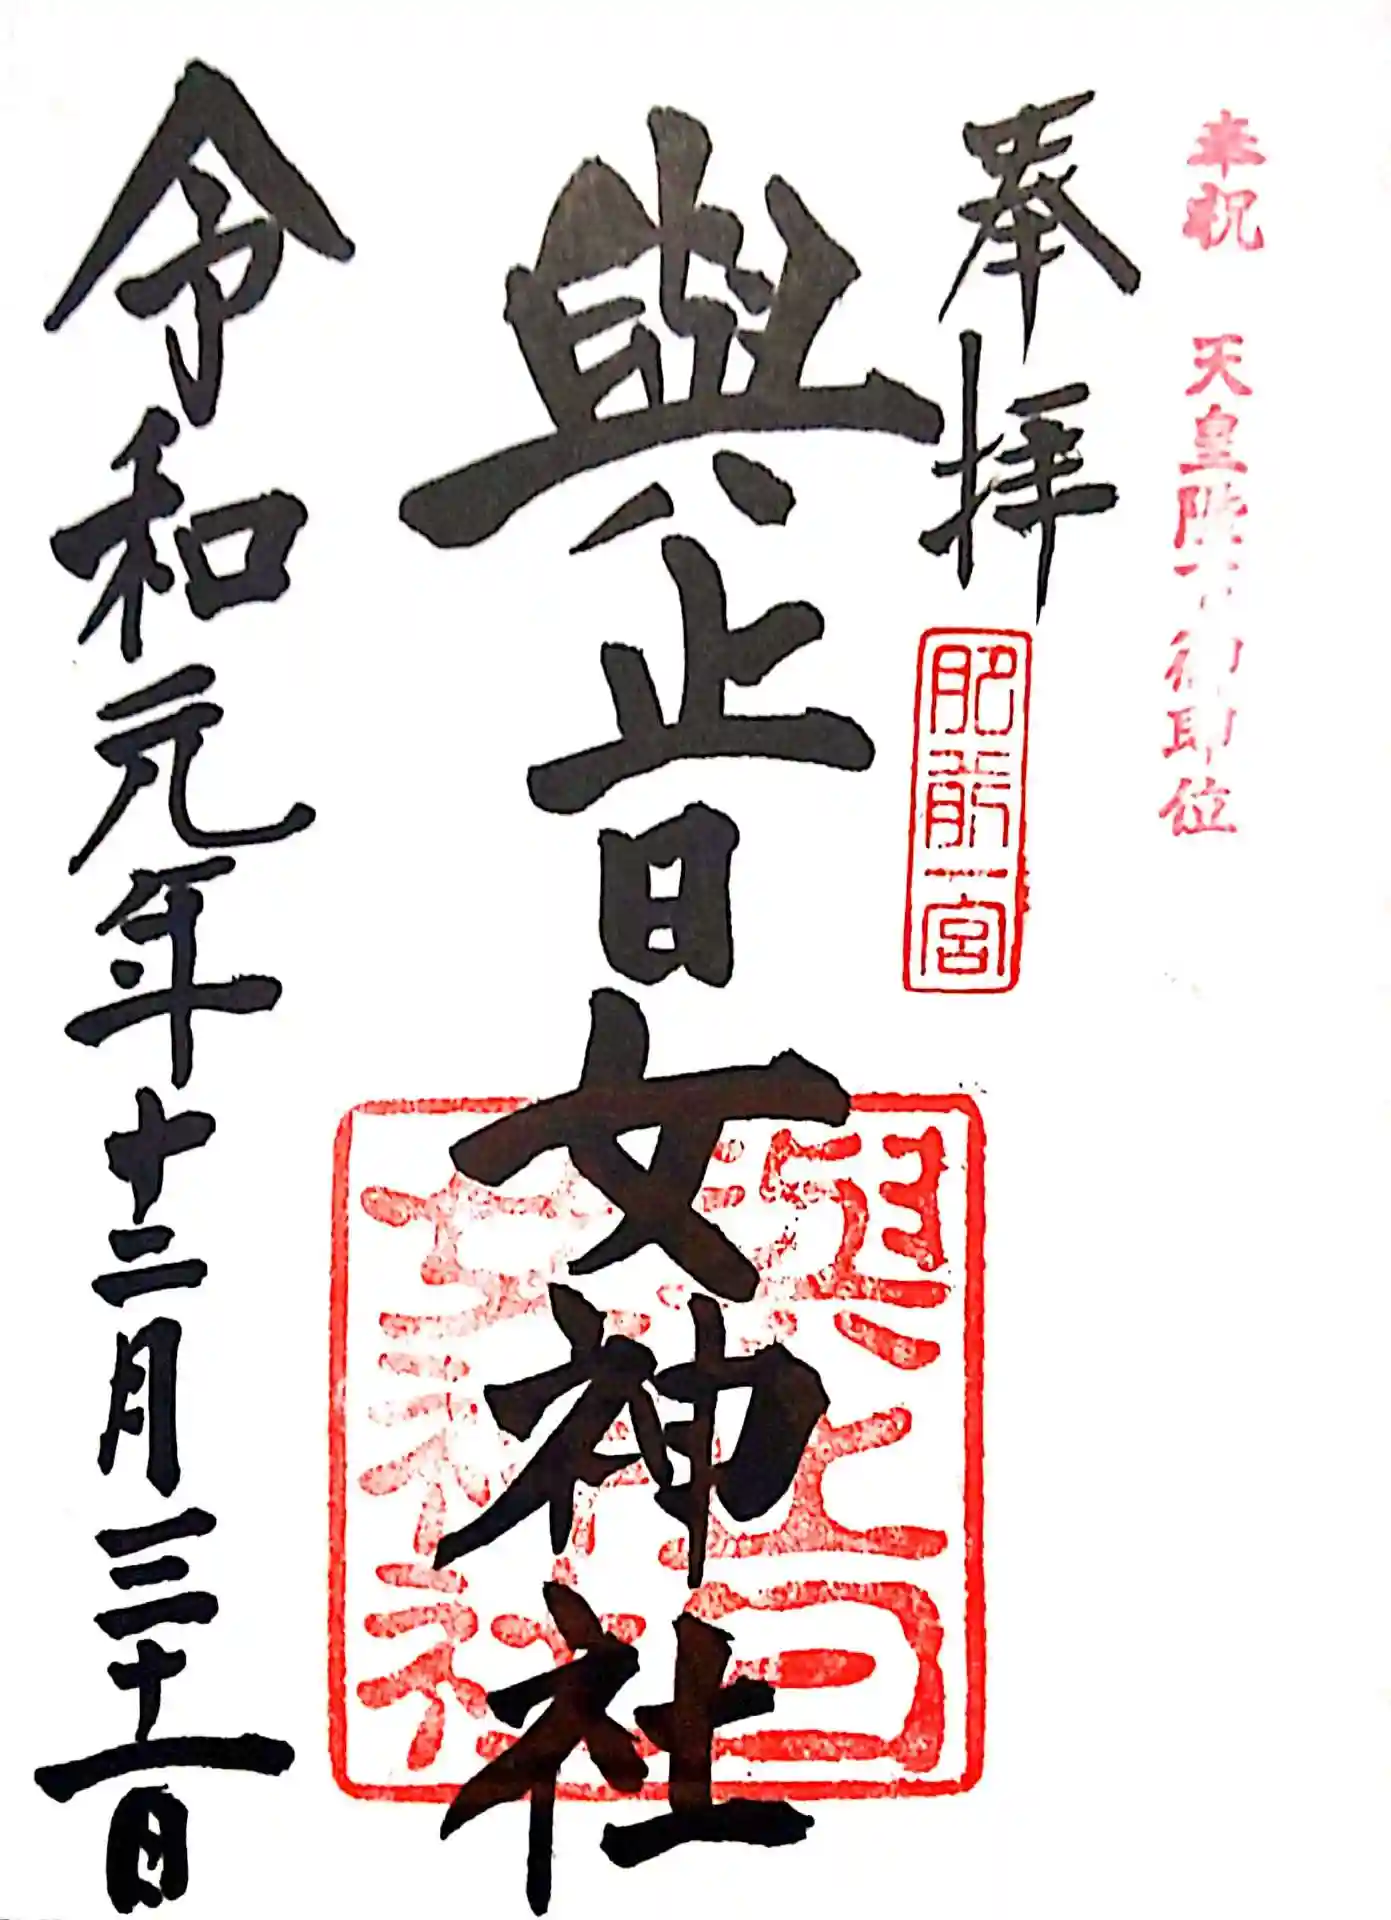 奉祝 天皇陛下御即位
奉拝
肥前一宮
與止日女神社
與止日
女神社
令和元年十二月三十一日